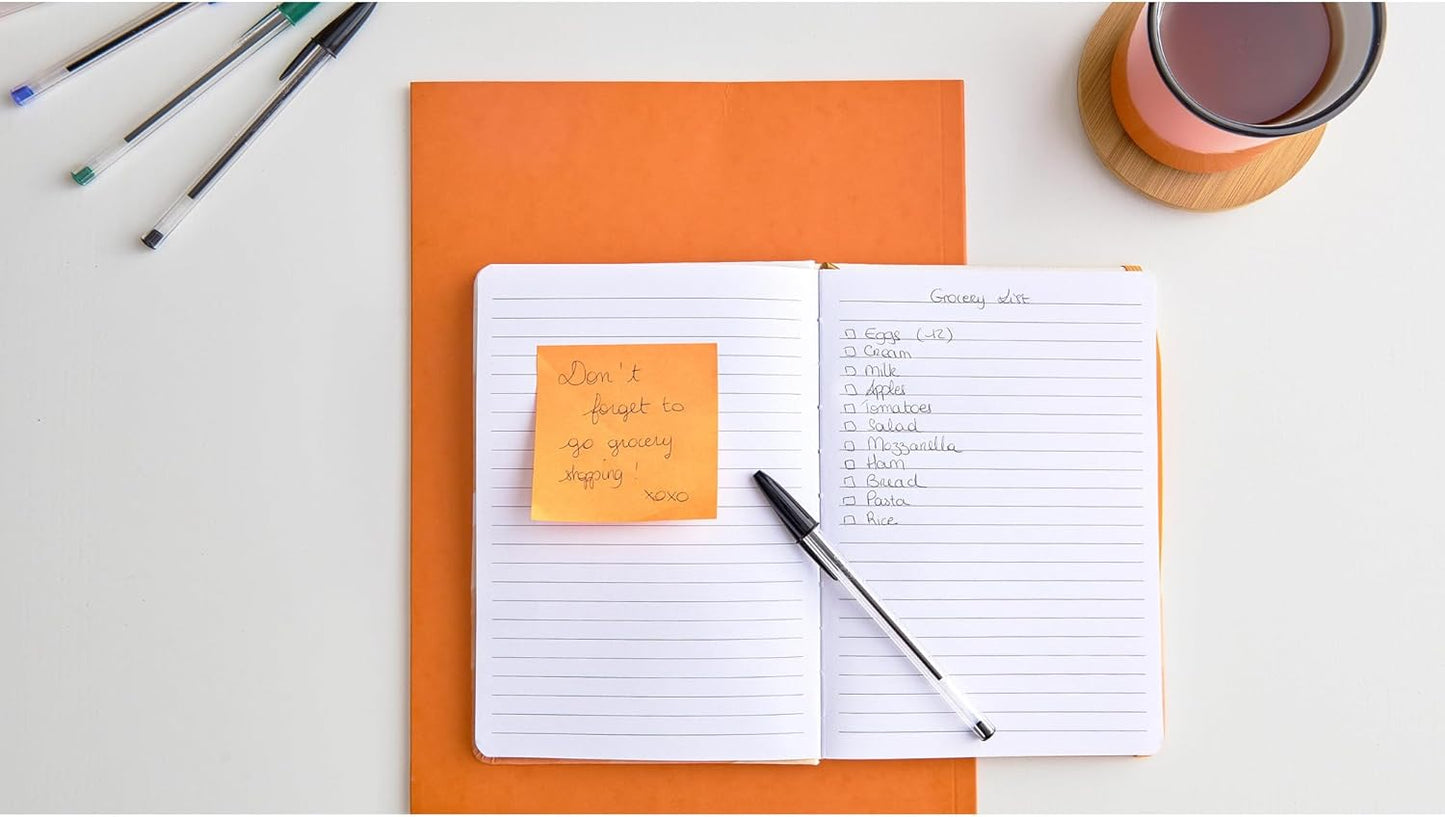 Don't
forget to
go grocery
shopping!
xoxo
Grocery List
Eggs (x12)
Cream
Milk
Apples
Tomatoes
Salad
Mozzarella
Ham
Bread
Pasta
Rice